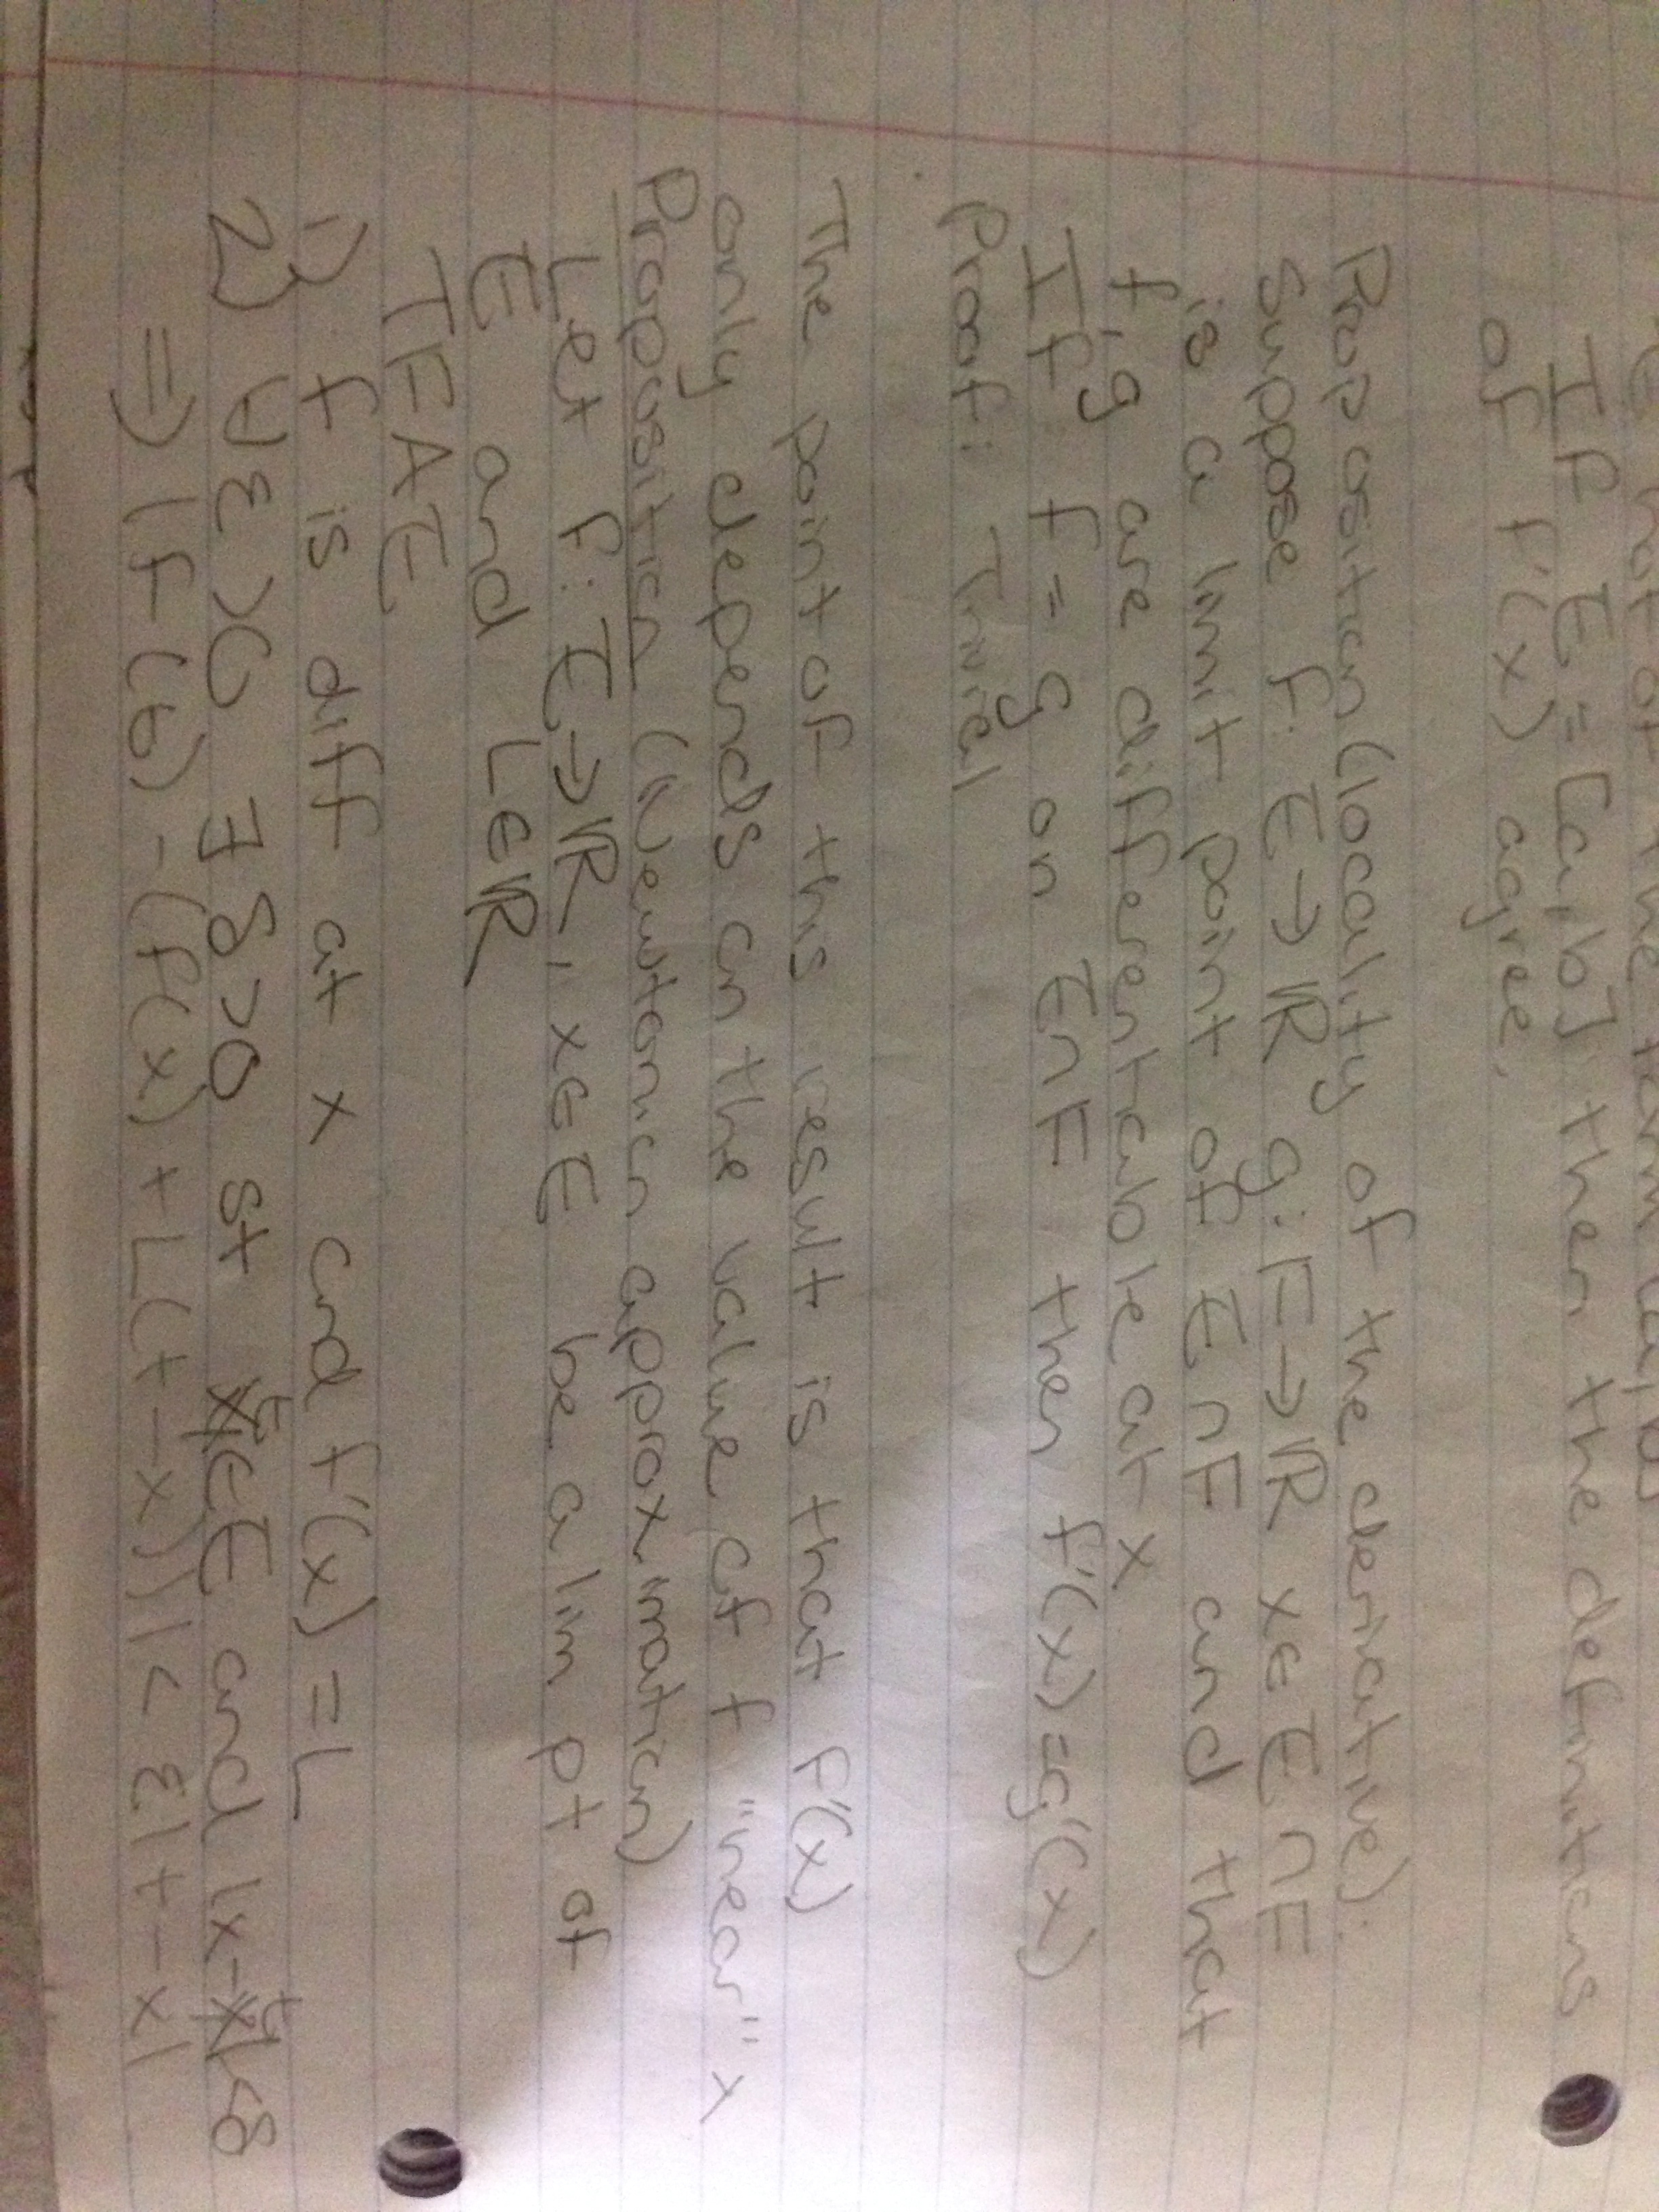 If E = [a,b] then the definitions
of f'(x) agree.
Proposition (locality of the derivative):
Suppose f: E→ℝ g: F→ℝ x∈E∩F
is a limit point of E∩F and that
f,g are differentiable at x
If f = g on E∩F then f'(x)=g'(x)
Proof: Trivial
The point of this result is that f'(x)
only depends on the value of f "near" x
Proposition (Newtonian approximation)
Let f: E→ℝ, x∈E be a lim pt of
E and L∈ℝ
TFAE
1) f is diff at x and f'(x) = L
2) ∀ε>0 ∃δ>0 st t∈E and |x-t|<δ
⇒ |f(t) - (f(x) + L(t-x))| < ε|t-x|